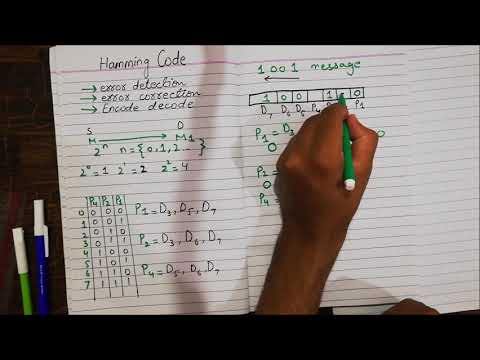 Hamming Code
→ error detection
→ error correction
→ Encode decode
S D
M M1
2ⁿ n = {0,1,2 -- }
2⁰ = 1 2¹ = 2 2² = 4
P4 P2 P1
0 0 0 0
1 0 0 1
2 0 1 0
3 0 1 1
4 1 0 0
5 1 0 1
6 1 1 0
7 1 1 1
P1 = D3, D5, D7
P2 = D3, D6, D7
P4 = D5, D6, D7
1 0 0 1 message
1 0 0 1 0
D7 D6 D5 P4 P1
P1 = D3
0 0
P2 =
0
P4 =